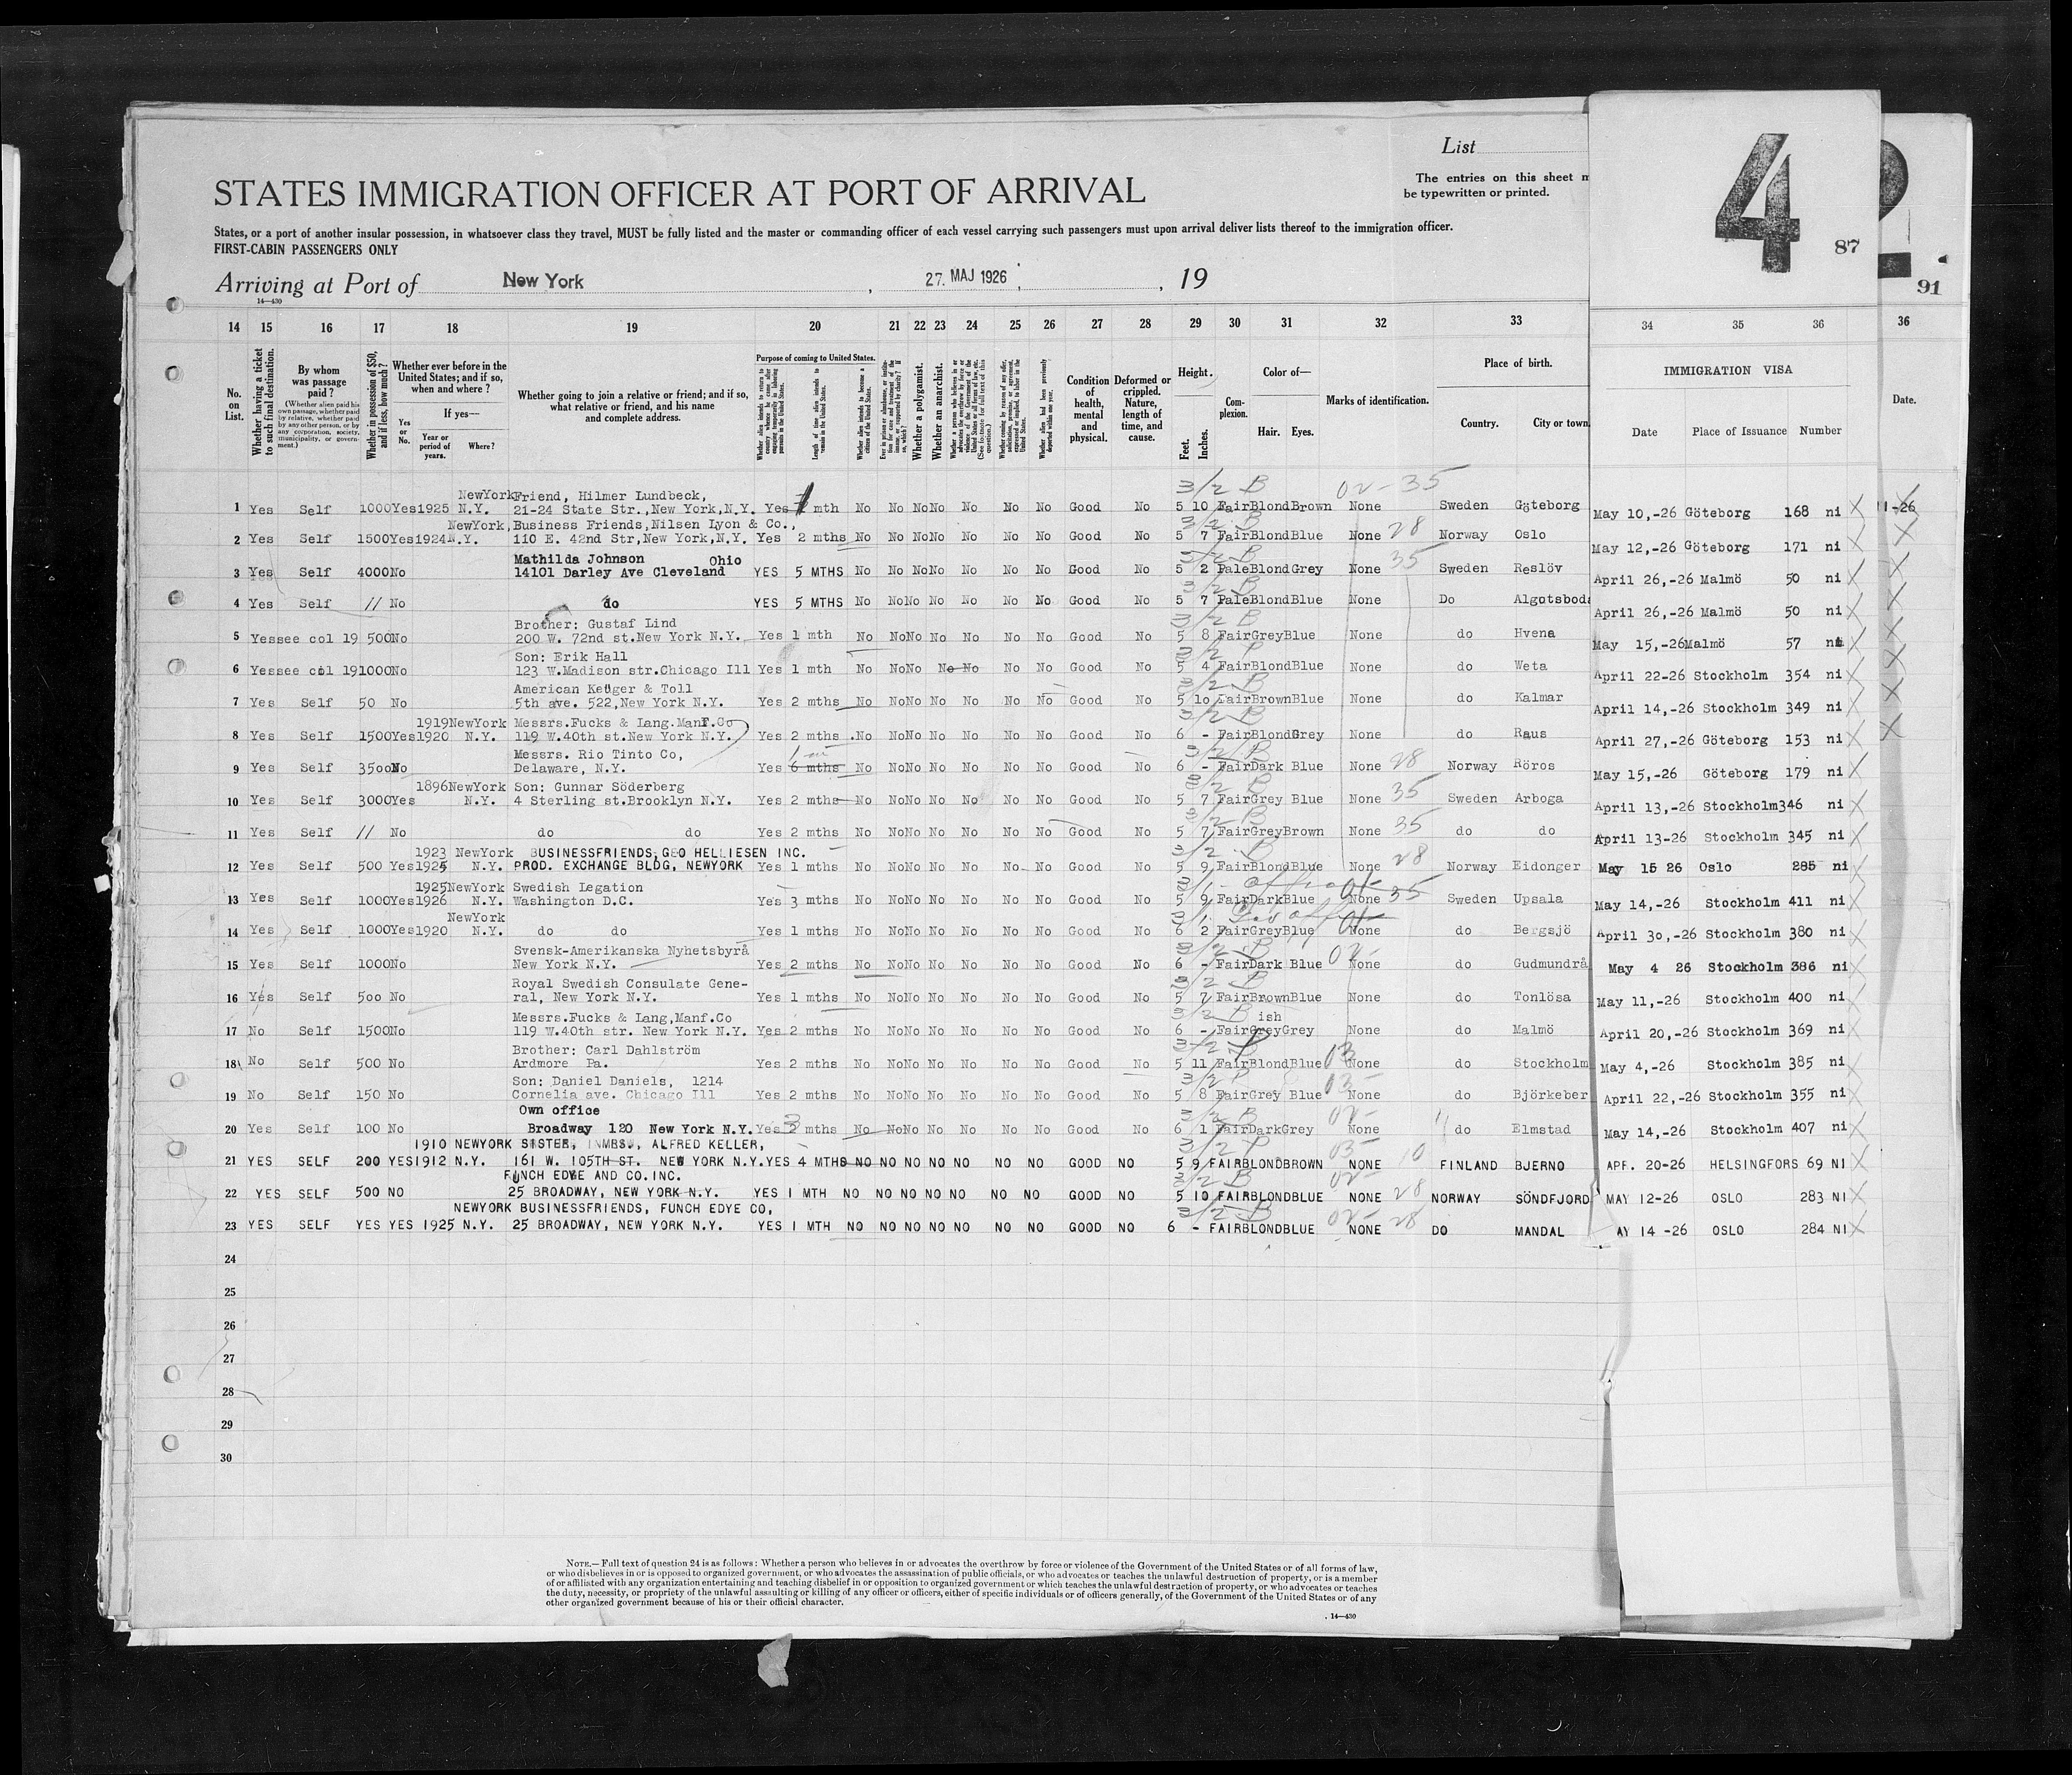 List
STATES IMMIGRATION OFFICER AT PORT OF ARRIVAL
The entries on this sheet
be typewritten or printed.
4
87
91
States, or a port of another insular possession, in whatsoever class they travel, MUST be fully listed and the master or commanding officer of each vessel carrying such passengers must upon arrival deliver lists thereof to the immigration officer.
FIRST-CABIN PASSENGERS ONLY
Arriving at Port of New York, 27. MAJ 1926, 19
14—430
14 15 16 17 18 19 20 21 22 23 24 25 26 27 28 29 30 31 32 33 34 35 36 36
No. on List.
Whether having a ticket to such final destination.
By whom was passage paid?
(Whether alien paid his own passage, whether paid by relative, whether paid by any other person, or by any corporation, society, municipality, or government.)
Whether in possession of $50, and if less, how much?
Whether ever before in the United States; and if so, when and where?
If yes—
Yes or No.
Year or period of years.
Where?
Whether going to join a relative or friend; and if so, what relative or friend, and his name and complete address.
Purpose of coming to United States.
Length of time alien intends to remain in the United States.
Whether alien intends to become a citizen of the United States.
Whether a polygamist.
Whether an anarchist.
Condition of health, mental and physical.
Deformed or crippled. Nature, length of time, and cause.
Height.
Feet.
Inches.
Complexion.
Color of—
Hair.
Eyes.
Marks of identification.
Place of birth.
Country.
City or town
IMMIGRATION VISA
Date
Place of Issuance
Number
Date.
NewYork Friend, Hilmer Lundbeck,
1 Yes Self 1000 Yes 1925 N.Y. 21-24 State Str.,New York,N.Y. Yes mth No No No No No No No Good No 5 10 Fair Blond Brown None Sweden Göteborg May 10,-26 Göteborg 168 ni
NewYork, Business Friends,Nilsen Lyon & Co.,
2 Yes Self 1500 Yes 1924 N.Y. 110 E. 42nd Str,New York,N.Y. Yes 2 mths No No No No No No No Good No 5 7 Fair Blond Blue None 28 Norway Oslo May 12,-26 Göteborg 171 ni
Mathilda Johnson Ohio
3 Yes Self 4000 No 14101 Darley Ave Cleveland YES 5 MTHS No No No No No No No Good No 5 2 Pale Blond Grey None 35 Sweden Reslöv April 26,-26 Malmö 50 ni
4 Yes Self // No do YES 5 MTHS No No No No No No No Good No 5 7 Pale Blond Blue None Do Algotsboda April 26,-26 Malmö 50 ni
Brother: Gustaf Lind
5 Yes see col 19 500 No 200 W. 72nd st.New York N.Y. Yes 1 mth No No No No No No No Good No 5 8 Fair Grey Blue None do Hvena May 15,-26 Malmö 57 ni
Son: Erik Hall
6 Yes see col 19 1000 No 123 W.Madison str.Chicago Ill Yes 1 mth No No No No No No No Good No 5 4 Fair Blond Blue None do Weta April 22-26 Stockholm 354 ni
American Keüger & Toll
7 Yes Self 50 No 5th ave. 522,New York N.Y. Yes 2 mths No No No No No No No Good No 5 10 Fair Brown Blue None do Kalmar April 14,-26 Stockholm 349 ni
1919 NewYork Messrs.Fucks & Lang.Manf.Co
8 Yes Self 1500 Yes 1920 N.Y. 119 W.40th st.New York N.Y. Yes 2 mths No No No No No No No Good No 6 - Fair Blond Grey None do Raus April 27,-26 Göteborg 153 ni
Messrs. Rio Tinto Co,
9 Yes Self 3500 No Delaware, N.Y. Yes 6 mths No No No No No No No Good No 6 - Fair Dark Blue None 28 Norway Röros May 15,-26 Göteborg 179 ni
1896 NewYork Son: Gunnar Söderberg
10 Yes Self 3000 Yes N.Y. 4 Sterling st.Brooklyn N.Y. Yes 2 mths No No No No No No No Good No 5 7 Fair Grey Blue None 35 Sweden Arboga April 13,-26 Stockholm 346 ni
11 Yes Self // No do do Yes 2 mths No No No No No No No Good No 5 7 Fair Grey Brown None 35 do do April 13-26 Stockholm 345 ni
1923 NewYork BUSINESSFRIENDS, GEO HELLIESEN INC.
12 Yes Self 500 Yes 1925 N.Y. PROD. EXCHANGE BLDG, NEWYORK Yes 1 mths No No No No No No No Good No 5 9 Fair Blond Blue None 28 Norway Eidonger May 15 26 Oslo 285 ni
1925 NewYork Swedish Legation
13 Yes Self 1000 Yes 1926 N.Y. Washington D.C. Yes 3 mths No No No No No No No Good No 5 9 Fair Dark Blue None 35 Sweden Upsala May 14,-26 Stockholm 411 ni
NewYork
14 Yes Self 1000 Yes 1920 N.Y. do do Yes 1 mths No No No No No No No Good No 6 2 Fair Grey Blue None do Bergsjö April 30,-26 Stockholm 380 ni
Svensk-Amerikanska Nyhetsbyrå
15 Yes Self 1000 No New York N.Y. Yes 2 mths No No No No No No No Good No 6 - Fair Dark Blue None do Gudmundrå May 4 26 Stockholm 386 ni
Royal Swedish Consulate Gene-
16 Yes Self 500 No ral, New York N.Y. Yes 1 mths No No No No No No No Good No 5 7 Fair Brown Blue None do Tonlösa May 11,-26 Stockholm 400 ni
Messrs.Fucks & Lang,Manf.Co ish
17 No Self 1500 No 119 W.40th str. New York N.Y. Yes 2 mths No No No No No No No Good No 6 - Fair Grey Grey None do Malmö April 20,-26 Stockholm 369 ni
Brother: Carl Dahlström
18 No Self 500 No Ardmore Pa. Yes 2 mths No No No No No No No Good No 5 11 Fair Blond Blue None do Stockholm May 4,-26 Stockholm 385 ni
Son: Daniel Daniels, 1214
19 No Self 150 No Cornelia ave. Chicago Ill Yes 2 mths No No No No No No No Good No 5 8 Fair Grey Blue None do Björkeber April 22,-26 Stockholm 355 ni
Own office
20 Yes Self 100 No Broadway 120 New York N.Y. Yes No No No No No No No Good No 6 1 Fair Dark Grey None do Elmstad May 14,-26 Stockholm 407 ni
1910 NEWYORK SISTER, ALFRED KELLER,
21 YES SELF 200 YES 1912 N.Y. 161 W. 105TH ST. NEW YORK N.Y. YES 4 MTHS NO NO NO NO NO NO NO GOOD NO 5 9 FAIR BLOND BROWN NONE 10 FINLAND BJERNO APR. 20-26 HELSINGFORS 69 NI
FUNCH EDYE AND CO.INC.
22 YES SELF 500 NO 25 BROADWAY, NEW YORK N.Y. YES 1 MTH NO NO NO NO NO NO NO GOOD NO 5 10 FAIR BLOND BLUE NONE 28 NORWAY SÖNDFJORD MAY 12-26 OSLO 283 NI
NEWYORK BUSINESSFRIENDS, FUNCH EDYE CO,
23 YES SELF YES YES 1925 N.Y. 25 BROADWAY, NEW YORK N.Y. YES 1 MTH NO NO NO NO NO NO NO GOOD NO 6 - FAIR BLOND BLUE NONE 28 DO MANDAL AY 14 -26 OSLO 284 NI
24
25
26
27
28
29
30
NOTE.— Full text of question 24 is as follows: Whether a person who believes in or advocates the overthrow by force or violence of the Government of the United States or of all forms of law,
or who disbelieves in or is opposed to organized government, or who advocates the assassination of public officials, or who advocates or teaches the unlawful destruction of property, or is a member
of or affiliated with any organization entertaining and teaching disbelief in or opposition to organized government or which teaches the unlawful destruction of property, or who advocates or teaches
the duty, necessity, or propriety of the unlawful assaulting or killing of any officer or officers, either of specific individuals or of officers generally, of the Government of the United States or of any
other organized government because of his or their official character.
14—430